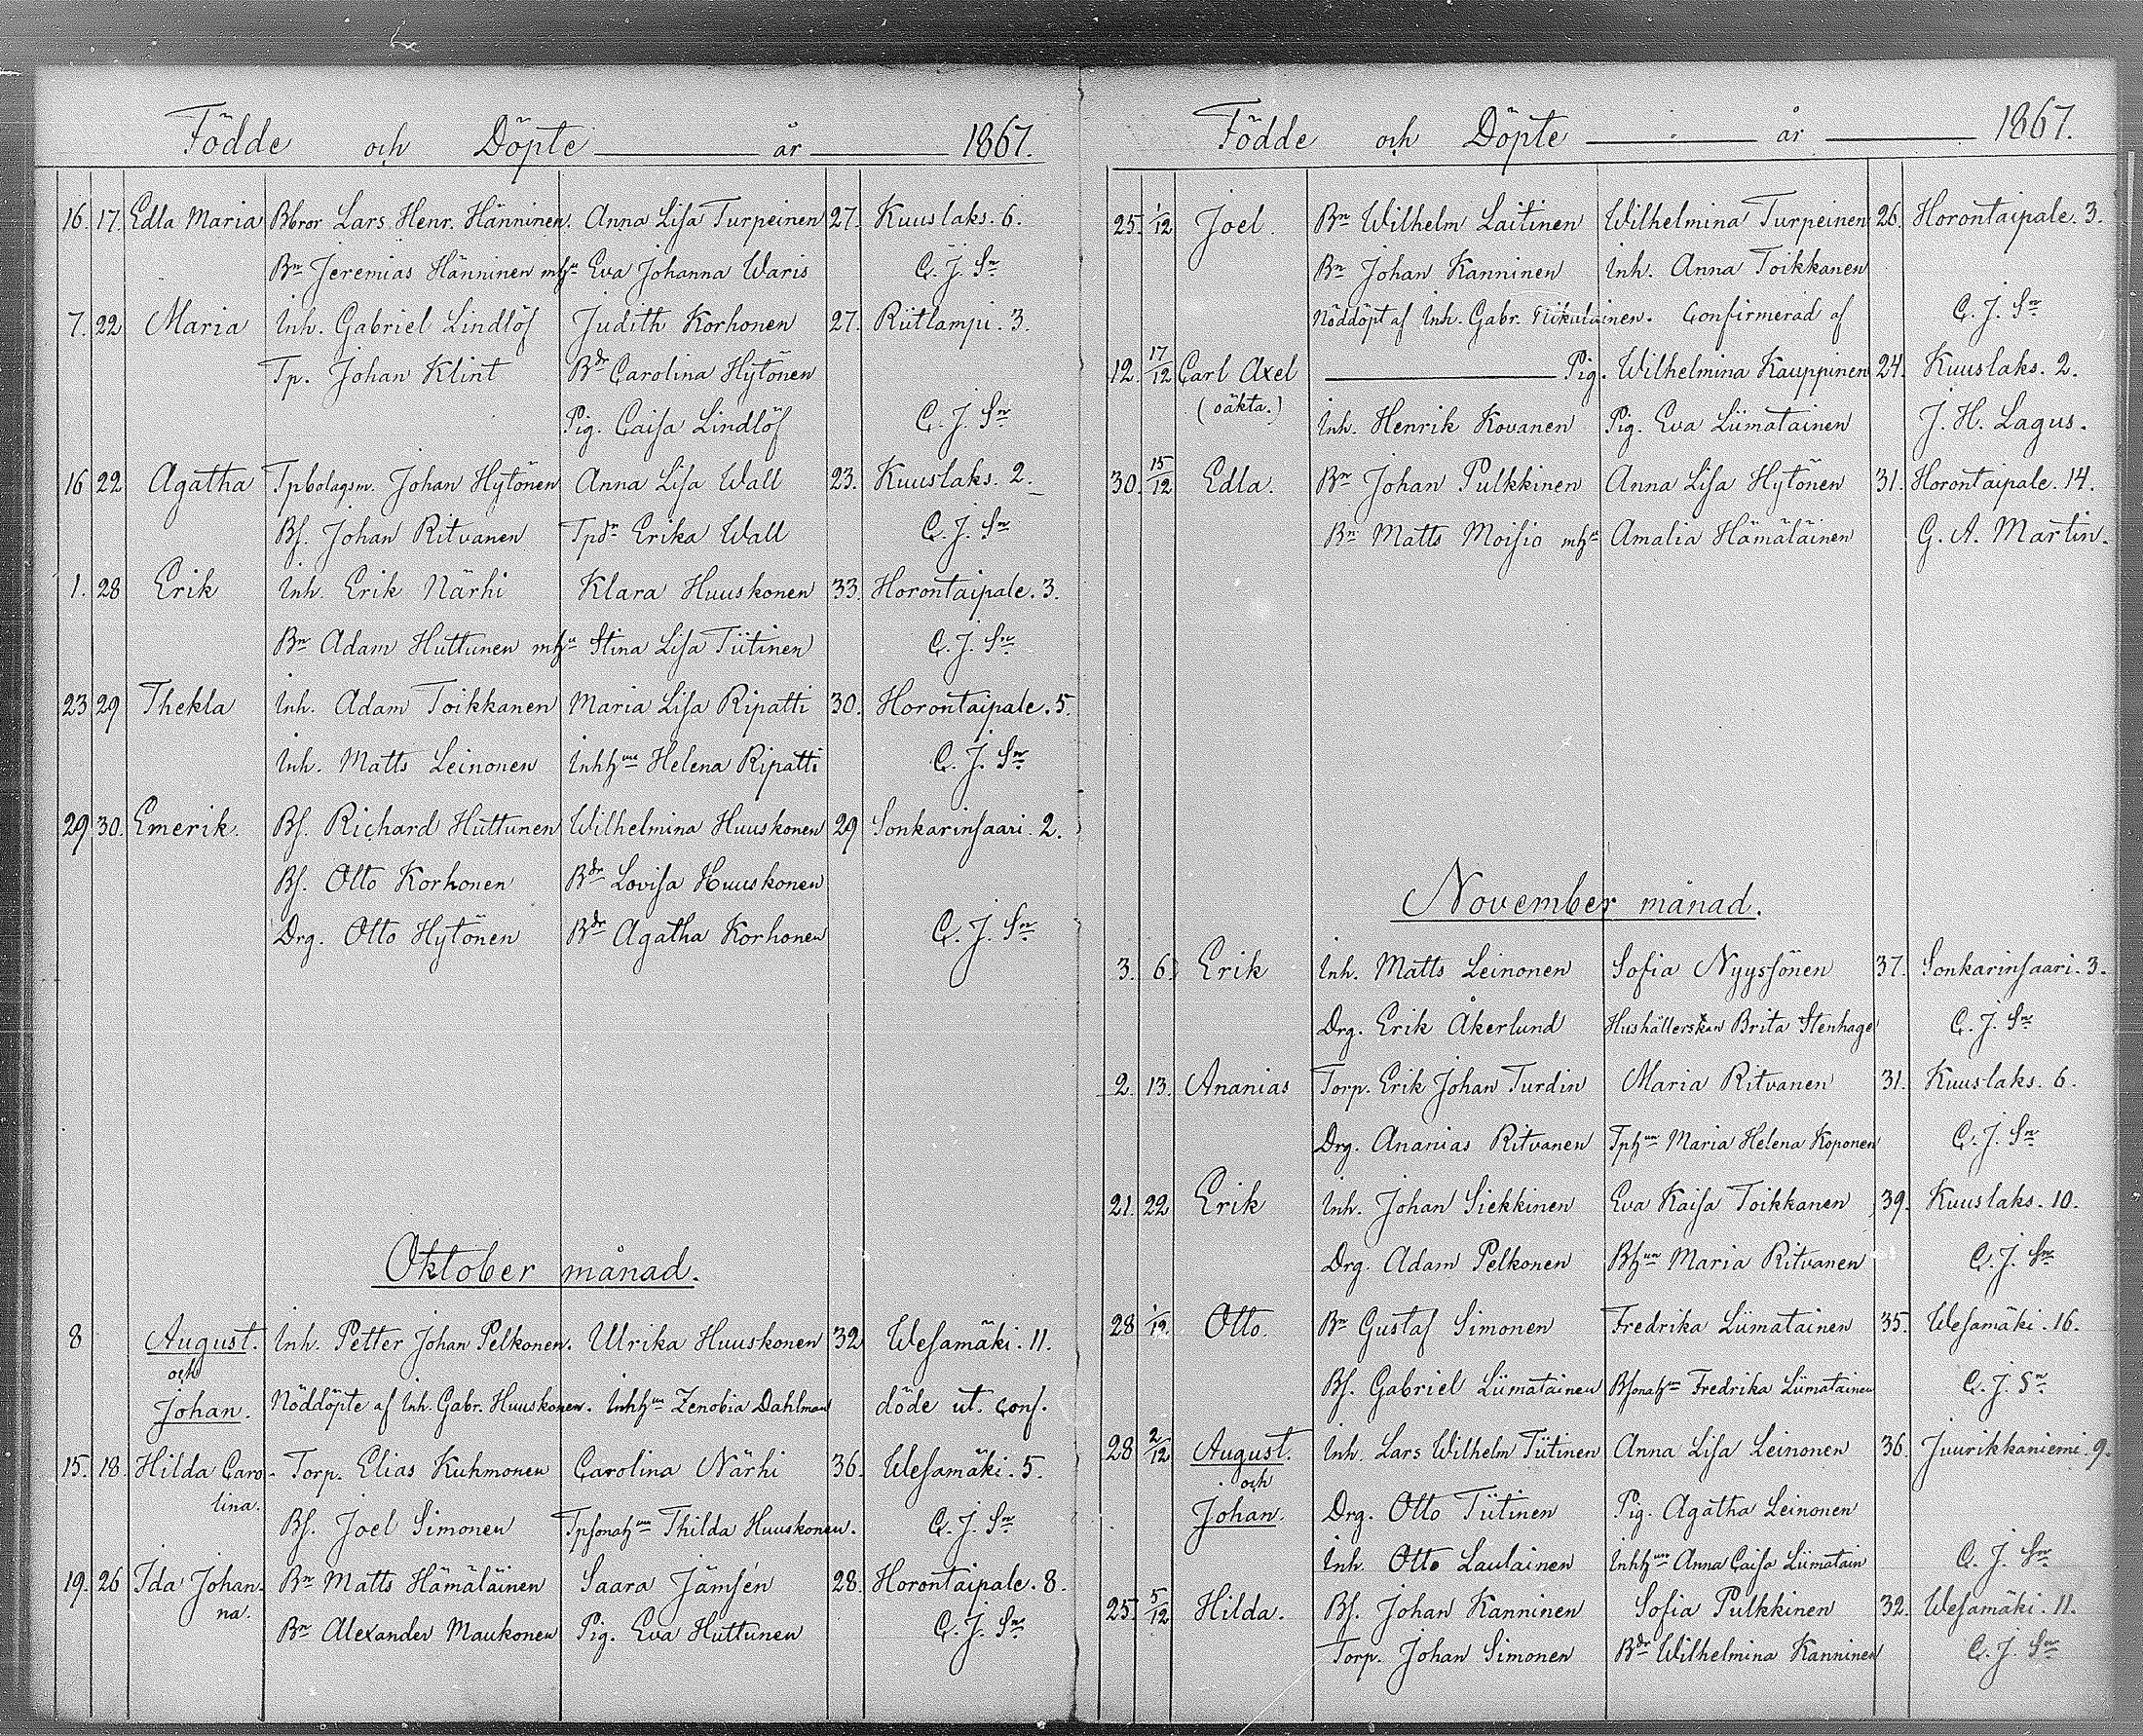 Födde och Döpte år 1867.
16. 17. Edla Maria Bbror Lars Henr. Hänninen. Anna Lisa Turpeinen 27. Kuuslaks. 6.
Bn Jeremias Hänninen mhu Eva Johanna Waris C. J. Sn
7. 22 Maria Inh. Gabriel Lindlöf Judith Korhonen 27. Riitlampi. 3.
Tp. Johan Klint Bdr Carolina Hytönen
Pig. Caisa Lindlöf C. J. Sn
16 22 Agatha Tpbolagsm. Johan Hytönen Anna Lisa Wall 23. Kuuslaks. 2.
Bs. Johan Ritvanen Tpdr Erika Wall C. J. Sn
1. 28 Erik Inh. Erik Närhi Klara Huuskonen 33. Horontaipale. 3.
Bn Adam Huttunen mhu Stina Lisa Tiitinen C. J. Sn
23 29 Thekla Inh. Adam Toikkanen Maria Lisa Ripatti 30. Horontaipale. 5.
Inh. Matts Leinonen Inhhun Helena Ripatti C. J. Sn
29 30. Emerik. Bs. Richard Huttunen Wilhelmina Huuskonen 29 Sonkarinsaari. 2.
Bs. Otto Korhonen Bdr Lovisa Huuskonen
Drg. Otto Hytönen Bdr Agatha Korhonen C. J. Sn
Oktober månad.
8 August. Inh. Petter Johan Pelkonen. Ulrika Huuskonen 32 Wesamäki. 11.
och
Johan. Nöddöpte af Inh. Gabr. Huuskonen. Inhhun Zenobia Dahlman döde ut. conf.
15. 18. Hilda Caro- Torp. Elias Kuhmonen Carolina Närhi 36. Wesamäki. 5.
lina.
Bs. Joel Simonen Tpsonahun Thilda Huuskonen. C. J. Sn
19. 26 Ida Johan- Bn Matts Hämäläinen Saara Jämsén 28. Horontaipale. 8.
na.
Bn Alexander Maukonen Pig. Eva Huttunen C. J. Sn
Födde och Döpte år 1867.
25. 1/12 Joel. Bn Wilhelm Laitinen Wilhelmina Turpeinen 26. Horontaipale. 3.
Bn Johan Kanninen Inh. Anna Toikkanen
Nöddöpt af Inh. Gabr. Tiikulainen. Confirmerad af C. J. Sn
12. 17/12 Carl Axel Pig. Wilhelmina Kauppinen 24. Kuuslaks. 2.
(oäkta.)
Inh. Henrik Kovanen Pig. Eva Liimatainen J. H. Lagus.
30. 15/12 Edla. Bn Johan Pulkkinen Anna Lisa Hytönen 31. Horontaipale. 14.
Bn Matts Moisio mhu Amalia Hämäläinen G. A. Martin.
November månad.
3. 6. Erik Inh. Matts Leinonen Sofia Nyyssönen 37. Sonkarinsaari. 3.
Drg. Erik Åkerlund Hushållerskan Brita Stenhage C. J. Sn
2. 13. Ananias Torp. Erik Johan Turdin Maria Ritvanen 31. Kuuslaks. 6.
Drg. Ananias Ritvanen Tphun Maria Helena Koponen C. J. Sn
21. 22 Erik Inh. Johan Siekkinen Eva Kaisa Toikkanen 39. Kuuslaks. 10.
Drg. Adam Pelkonen Bhun Maria Ritvanen C. J. Sn
28 1/12 Otto. Bn Gustaf Simonen Fredrika Liimatainen 35. Wesamäki. 16.
Bs. Gabriel Liimatainen Bsonahun Fredrika Liimatainen C. J. Sn
28 2/12 August. Inh. Lars Wilhelm Tiitinen Anna Lisa Leinonen 36. Juurikkaniemi. 9.
och
Johan. Drg. Otto Tiitinen Pig. Agatha Leinonen
Inh. Otto Laulainen Inhhun Anna Caisa Liimatain C. J. Sn
25. 5/12 Hilda. Bs. Johan Kanninen Sofia Pulkkinen 32. Wesamäki. 11.
Torp. Johan Simonen Bdr Wilhelmina Kanninen C. J. Sn